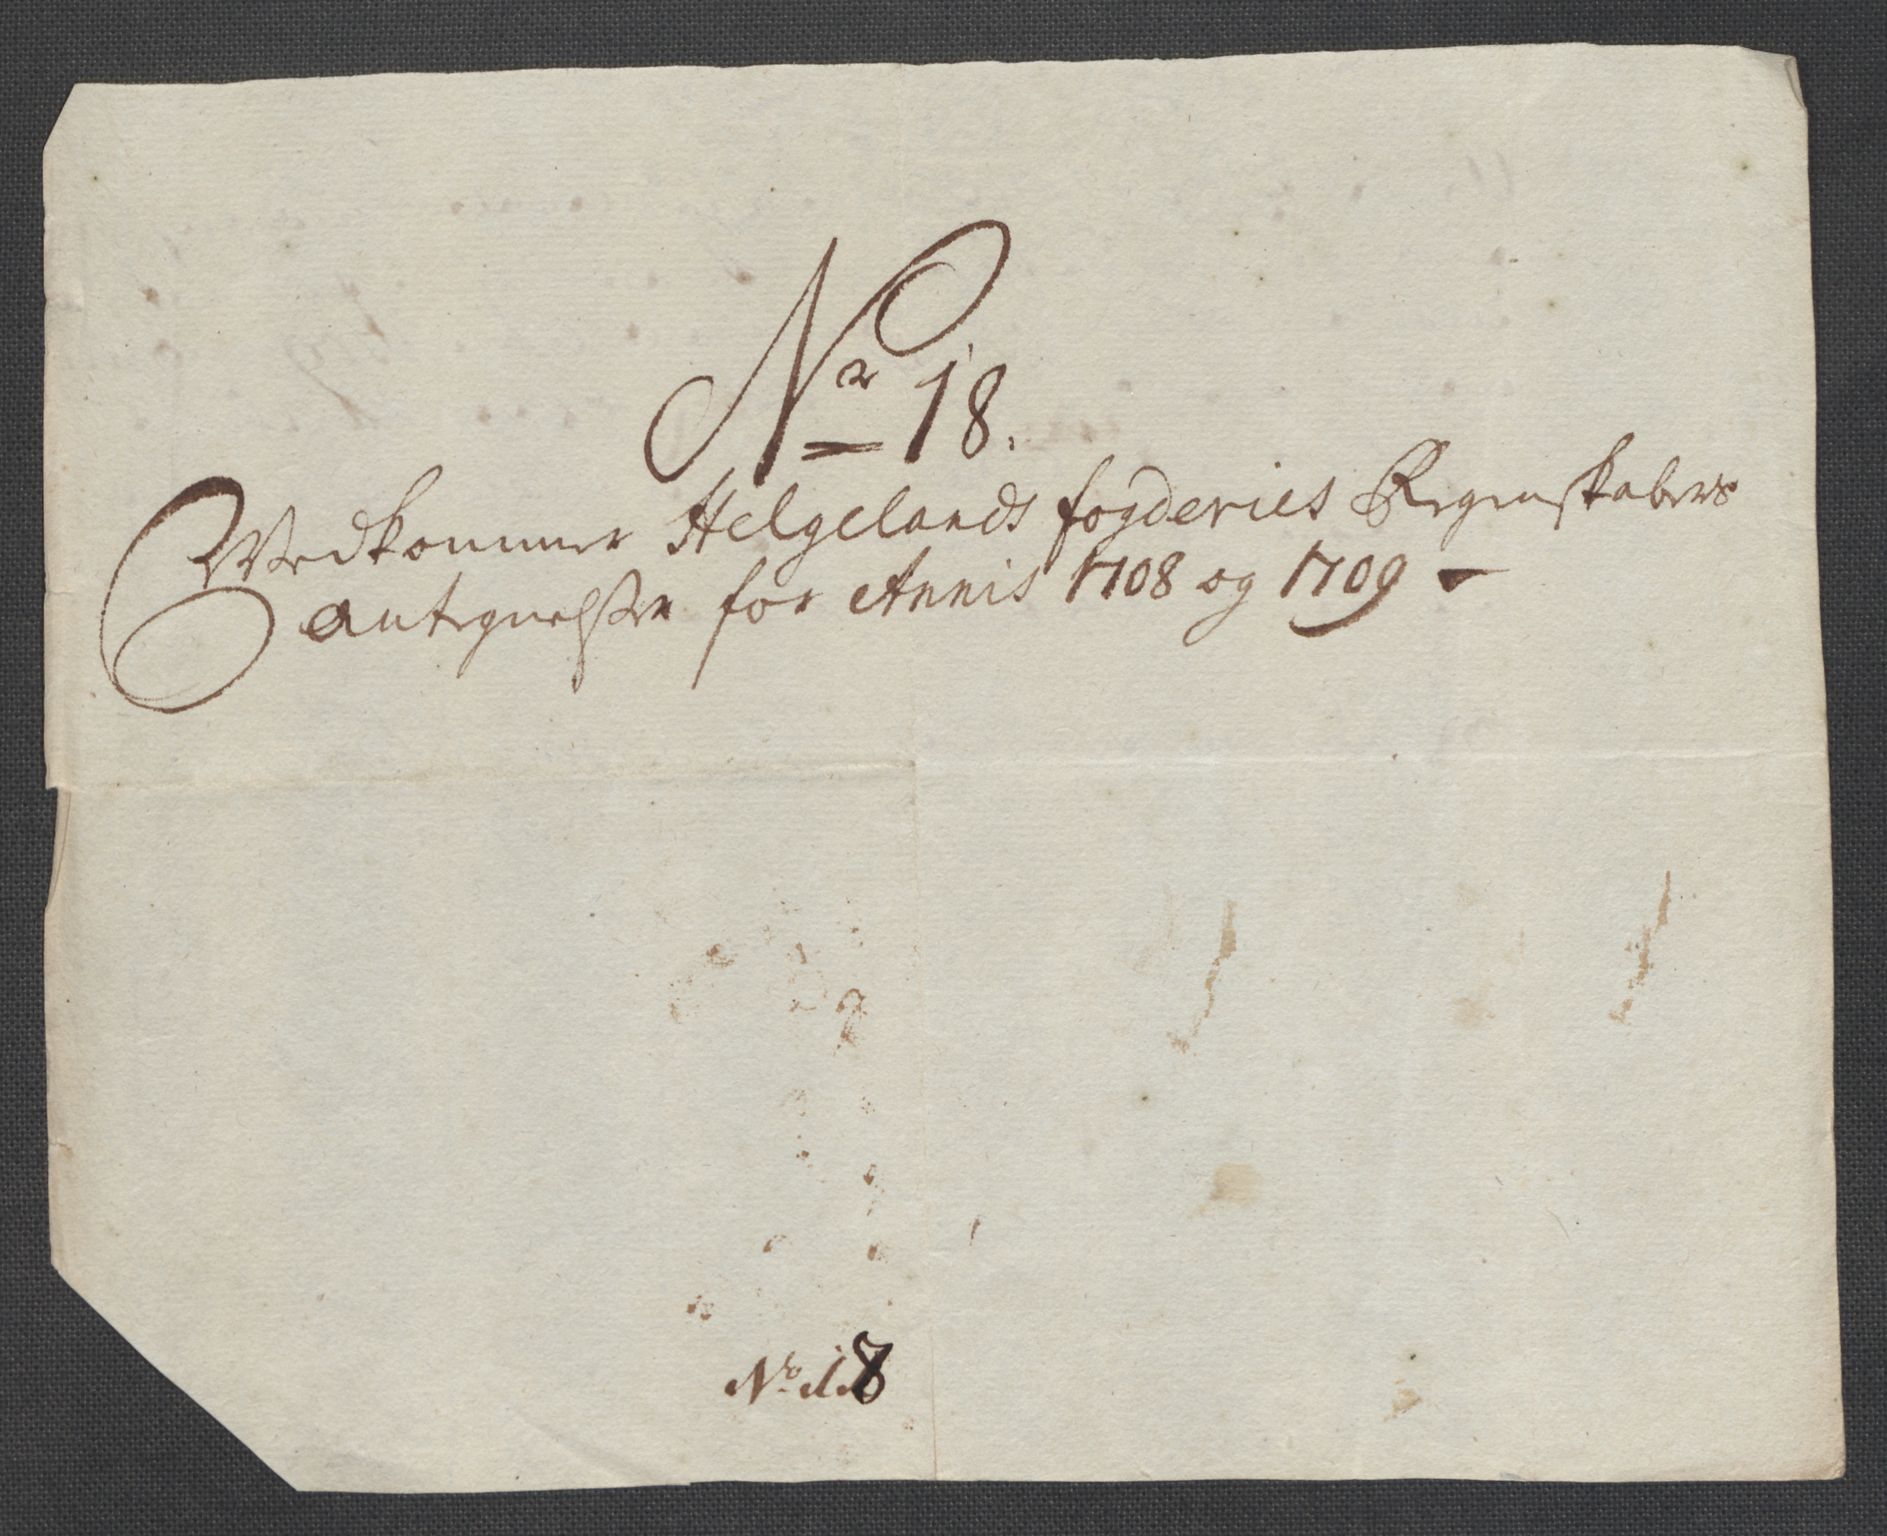 Nr 18.
Vedkommer Helgelands fogderies Regenskabers
Antegnelser for Annis 1708 og 1709
No. 18